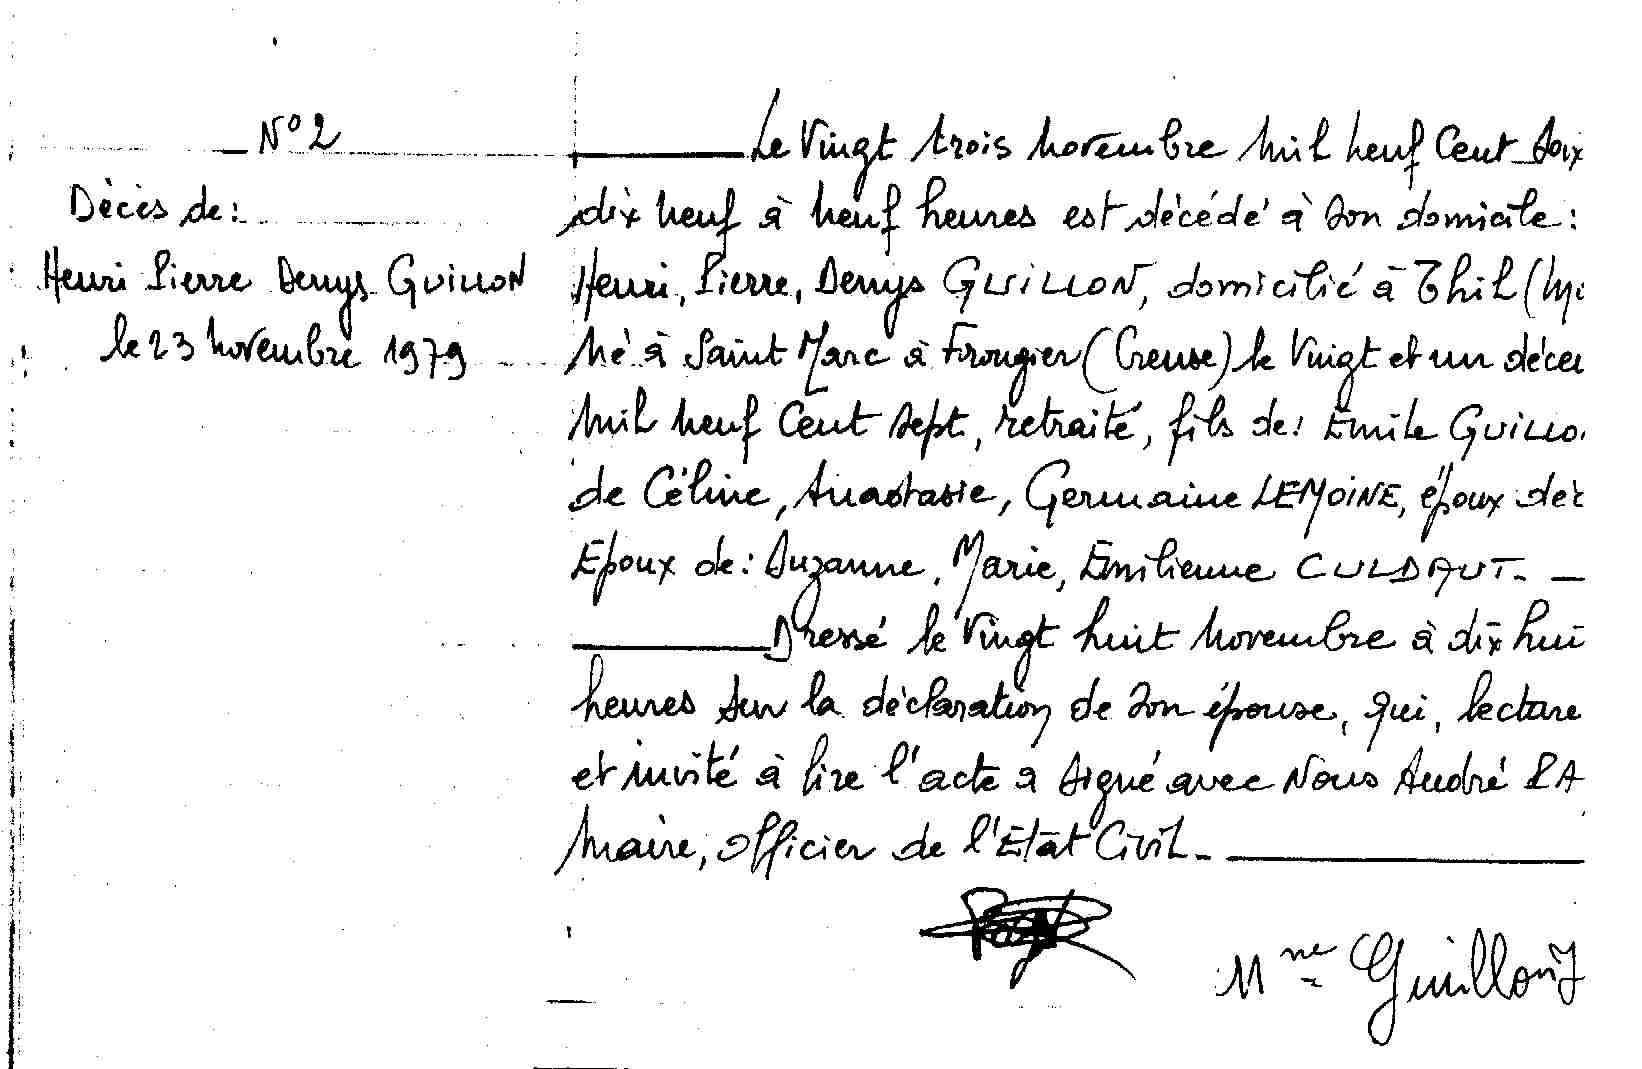 N° 2
Décès de:
Henri Pierre Denys GUILLON
le 23 novembre 1979
Le Vingt trois novembre mil neuf Cent Soix
dix neuf à neuf heures est décédé à son domicile:
Henri, Pierre, Denys GUILLON, domicilié à Thil (
né à Saint Marc à Frougier (Creuse) le Vingt et un décem
mil neuf Cent sept, retraité, fils de: Emile GUILLO
de Céline, Anastasie, Germaine LEMOINE, époux déc
Epoux de: Suzanne, Marie, Emilienne CULDAUT. —
Dressé le Vingt huit novembre à dix hui
heures sur la déclaration de son épouse, qui, lecture
et invité à lire l'acte a signé avec Nous André RA
Maire, Officier de l'Etat Civil. -
Mme Guillon